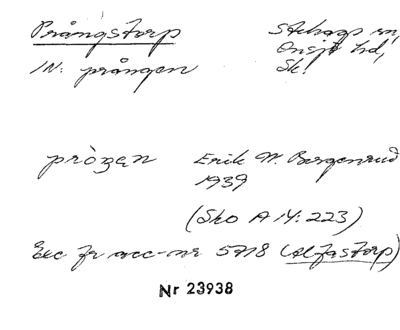 Prångstorp Stehags sn,
Onsjö hd,
IN: prången Sk.
pròŋen Erik W. Bergenrud
1939
(Sko A 14:223)
Exc fr acc-nr 5718 (Alfastorp)
Nr 23938